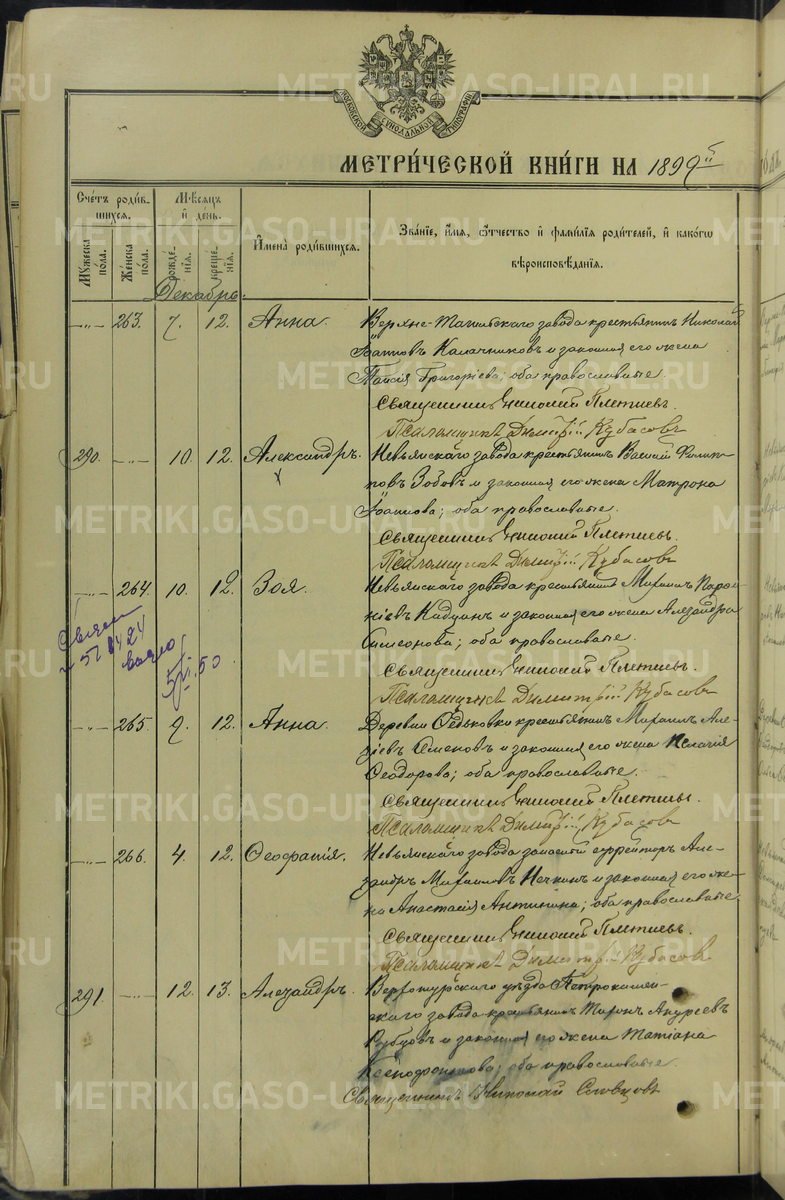 МОСКОВСКОЙ СѴНОДАЛЬНОЙ ТИПОГРАФІИ
МЕТРИ́ЧЕСКОЙ КНИ́ГИ НА 1899
Сче́тъ роди́в-
шихся.
Мѣ́сяцъ
и҆ де́нь.
И҆мена̀ роди́вшихся.
Зва́нїе, и҆́мя, ѻ҆́тчество и҆ фами́лїя роди́телей, и҆ како́гѡ
вѣроисповѣ́данїя.
Мꙋ́жеска по́ла.
Же́нска по́ла.
рожде́нїя.
креще́нїя.
Декабрь.
—„— 263. 7. 12. Анна. Верхне-Тагильскаго завода крестьянинъ Николай
Іоанновъ Калачниковъ и законная его жена
Таисія Григоріева; оба православные.
Священникъ Николай Плетневъ.
Псаломщикъ Димитрій Кубасовъ
290. —„— 10. 12. Александръ. Невьянскаго завода крестьянинъ Василій Филип-
повъ Зобовъ и законная его жена Матрона
Іоаннова; оба православные.
Священникъ Николай Плетневъ.
Псаломщикъ Димитрій Кубасовъ
—„— 264. 10. 12. Зоя. Невьянскаго завода крестьянинъ Михаилъ
и законная его жена Александра
Симеонова; оба православные.
5/VI.50
Священникъ Николай Плетневъ.
Псаломщикъ Димитрій Кубасовъ
—„— 265. 9. 12. Анна. Деревни Федьковки крестьянинъ Михаилъ Але-
Семеновъ и законная его жена Пелагія
Ѳеодорова; оба православные.
Священникъ Николай Плетневъ.
Псаломщикъ Димитрій Кубасовъ
—„— 266. 4. 12. Ѳеофанія. Невьянскаго завода запасный ефрейторъ Але-
ксандръ Михаиловъ Нечкинъ и законная его же-
на Анастасія Антипина; оба православные.
Священникъ Николай Плетневъ.
Псаломщикъ Димитрій Кубасовъ
291. —„— 12. 13. Александръ. Верхотурскаго уѣзда Петрокамен-
скаго завода крестьянинъ Андреевъ
и законная его жена Татіана
оба православные
Священникъ Николай Словцовъ
METRIKI.GASO-URAL.RU